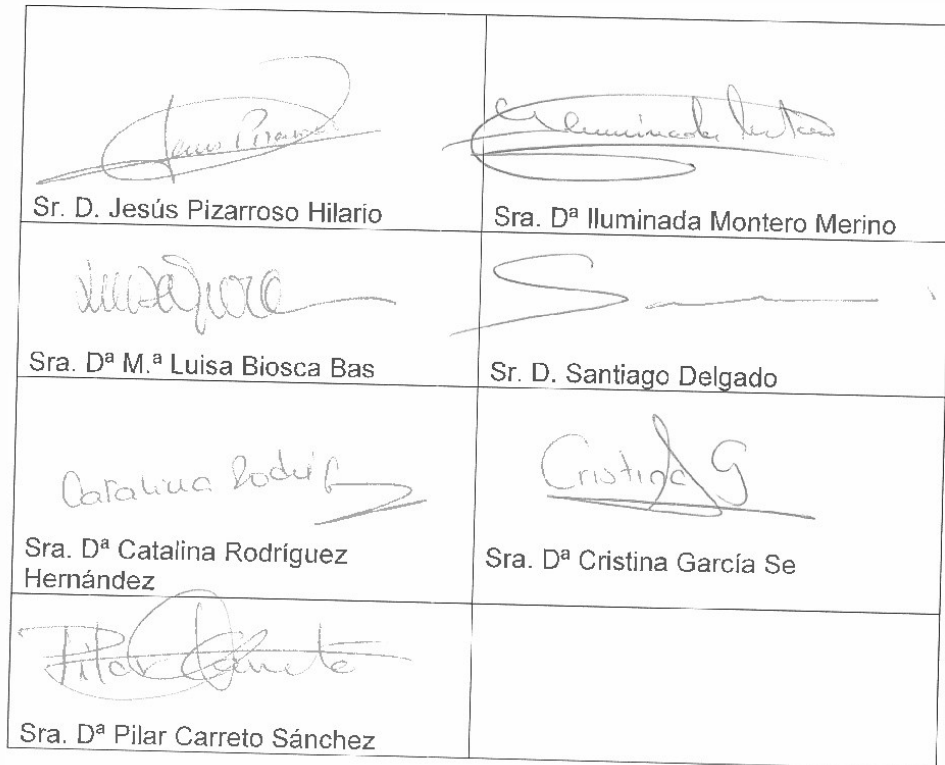 Jesus
Sr. D. Jesús Pizarroso Hilario
Iluminada
Sra. Dª Iluminada Montero Merino
Sra. Dª M.ª Luisa Biosca Bas
Sr. D. Santiago Delgado
Catalina Rodríg
Sra. Dª Catalina Rodríguez
Hernández
Cristina G
Sra. Dª Cristina García Se
Pilar Carreto
Sra. Dª Pilar Carreto Sánchez